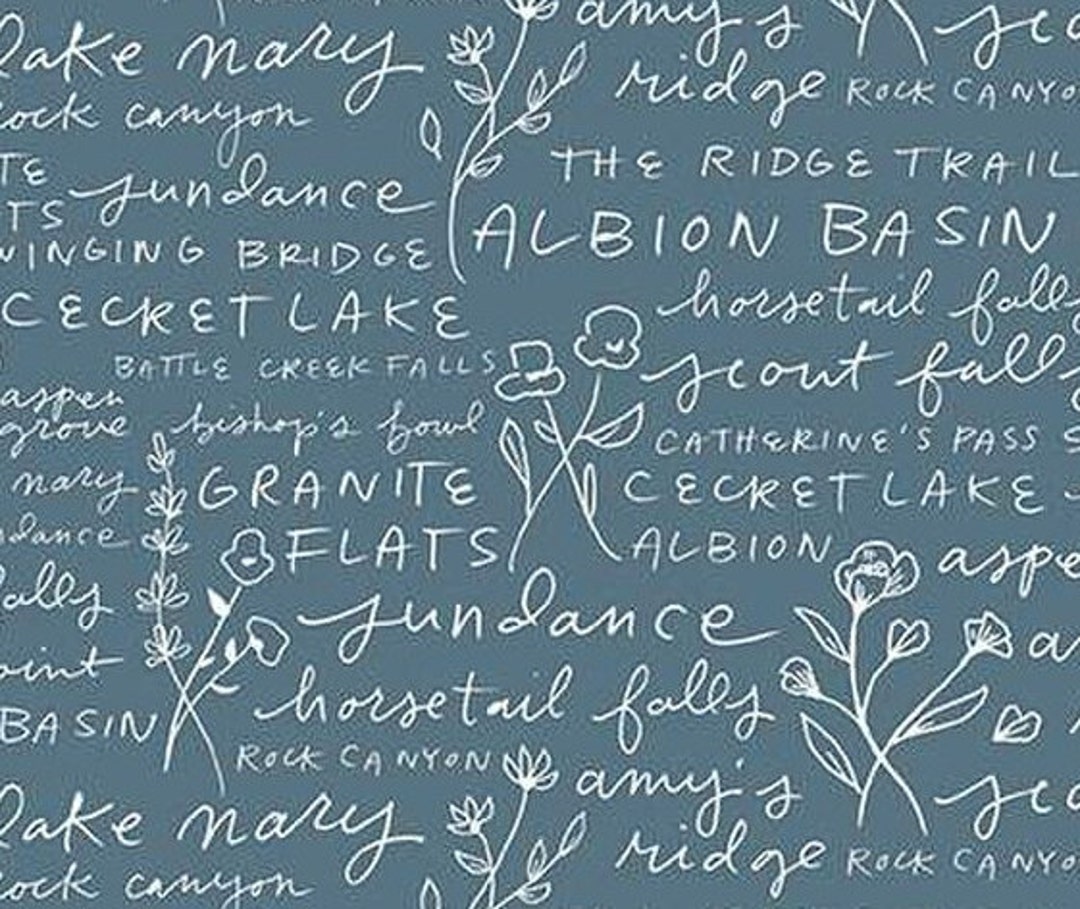 amy's
lake mary
ridge ROCK CANYO
rock canyon
THE RIDGE TRAIL
TE
sundance
TS
ALBION BASIN
WINGING BRIDGE
horsetail falls
CECRET LAKE
scout falls
BATTLE CREEK FALLS
aspen
grove
bishop's bowl
CATHERINE'S PASS S
mary
GRANITE
CECRET LAKE
dance
FLATS
ALBION
aspe
ally
sundance
oint
a
horsetail falls
BASIN
ROCK CANYON
amy's
lake mary
sco
ridge ROCK CANYO
rock canyon